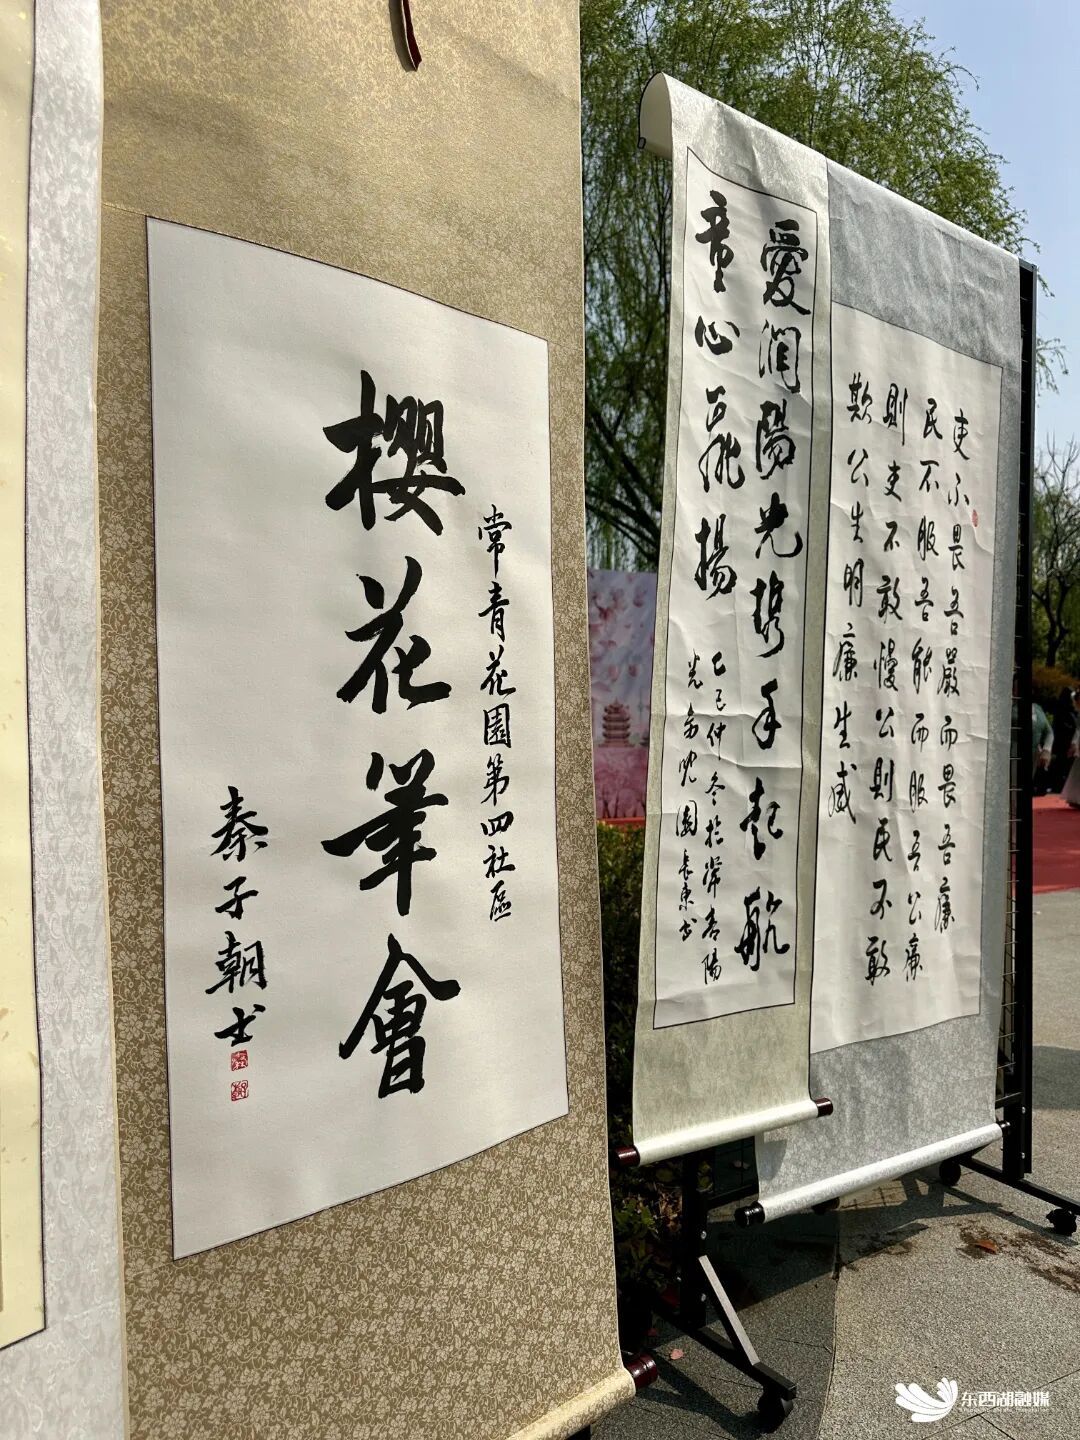 常青花園第四社區
櫻花筆會
秦子朝书
愛潤陽光携手起航
童心飛揚
乙巳仲冬於常青陽
光幼兒園
吏不畏吾嚴而畏吾廉
民不服吾能而服吾公廉
則吏不敢慢公則民不敢
欺公生明廉生威
东西湖融媒